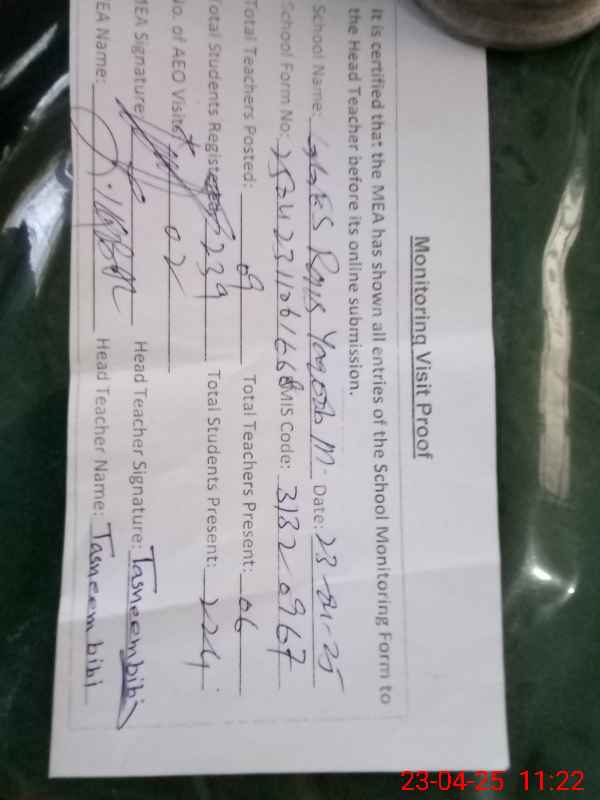 Monitoring Visit Proof
It is certified that the MEA has shown all entries of the School Monitoring Form to
the Head Teacher before its online submission.
School Name: Date: 23-04-25
School Form No: EMIS Code: 31320967
Total Teachers Posted: 09 Total Teachers Present: 06
Total Students Registered: 239 Total Students Present: 224
No. of AEO Visits: 02
MEA Signature: Head Teacher Signature: Tasneem bibi
MEA Name: Head Teacher Name: Tasneem bibi
23-04-25 11:22